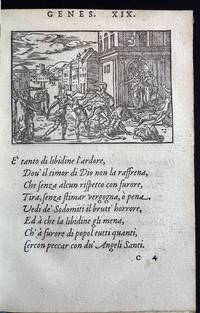 GENES. XIX.
E' tanto di libidine l'ardore,
Dou' il timor di Dio non la raffrena,
Che senza alcun rispetto con furore,
Tira, senza stimar vergogna, ò pena.
Vedi de' Sodomiti il brutt' horrore,
Ed à che la libidine gli mena,
Ch' à furore di popol tutti quanti,
Cercon peccar con du' Angeli Santi.
C 4